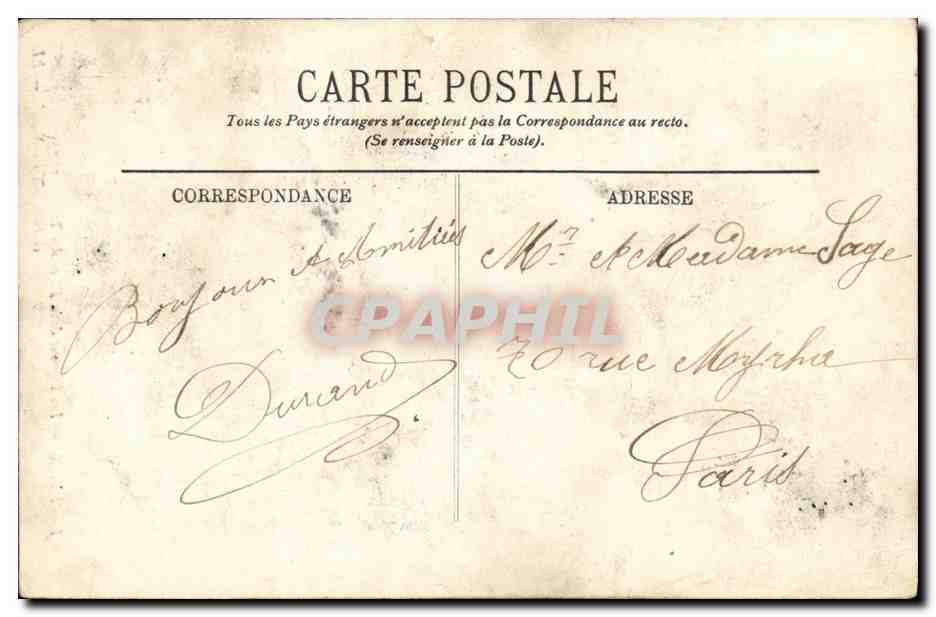 CARTE POSTALE
Tous les Pays étrangers n'acceptent pas la Correspondance au recto.
(Se renseigner à la Poste).
CORRESPONDANCE
Bonjour & Amitiés
Durand
ADRESSE
Mr & Madame Sage
70 rue Myrha
Paris
CPAPHIL